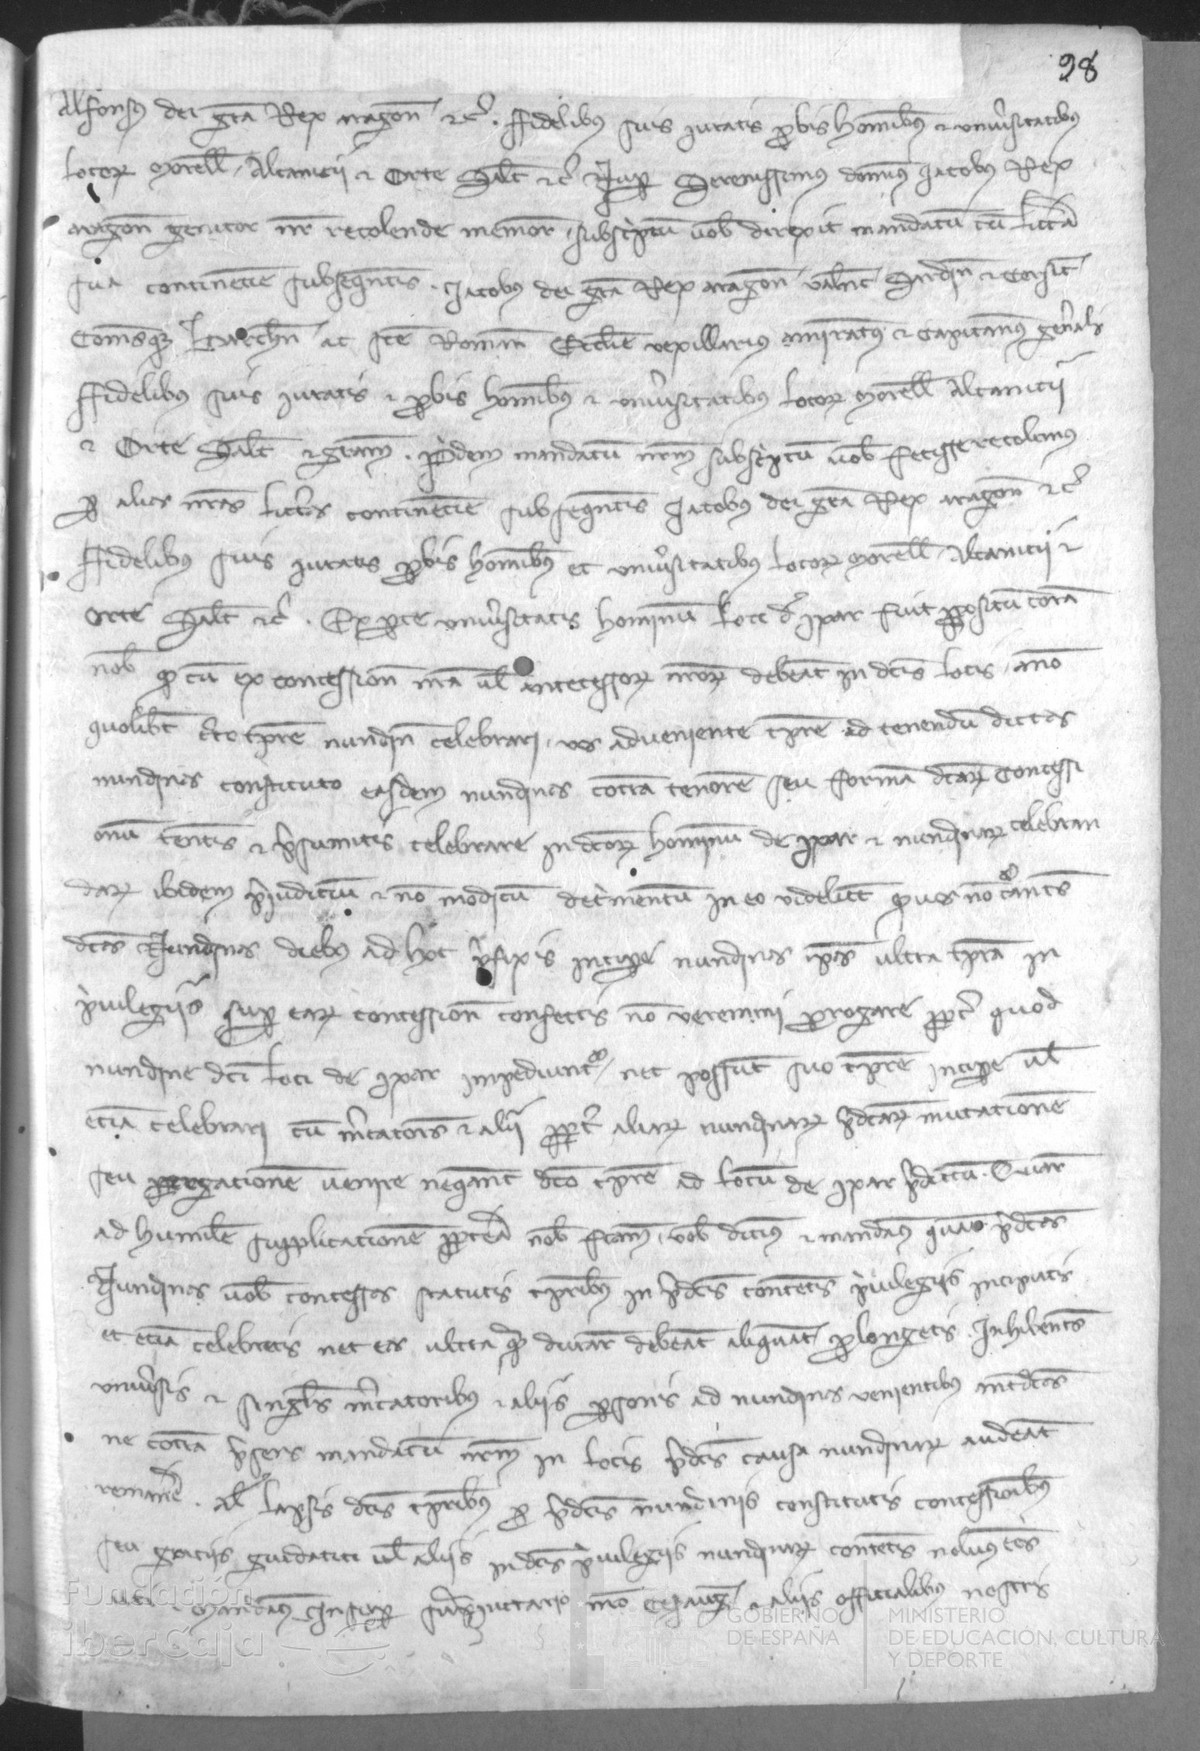 98
Alfonsus dei gra Rex aragon etc. ffidelibus suis juratis probis hominibus et universitatibus
locorum Morell Alcanicii et Orte Salt etc Nup Serenissimus dominus Jacobus Rex
aragon genitor nr recolende memor subscriptum vob direxit mandatum cum littera
sua continencie subsequentis. Jacobus dei gra Rex aragon valent Sardin et Corsic
Comesque barchn ac sce Roman Ecclie vexillarius amirantus et Capitaneus generalis
ffidelibus suis juratis et probis hominibus et universitatibus locorum Morell Alcanicii
et Orte Salt et gram. Pridem mandatum nrm subscriptum vob fecisse recolimus
per alias nras litteras continencie subsequentis Jacobus dei gra Rex aragon etc
ffidelibus suis juratis probis hominibus et universitatibus locorum Morell Alcanicii et
Orte Salt etc. Ex parte universitatis hominum loci de ixar fuit propositum coram
nob quod cum ex concession nra vel antecessorum nrorum debeant in dcis locis anno
quolibet certo tempre nundin celebrari, vos adveniente tempre ad tenendum dictas
nundinas constituto easdem nundinas contra tenorem seu formam dcarum concessi
onum tenetis et presumitis celebrare in dcorum hominum de ixar et nundinarum celebran
darum ibidem prejudicium et non modicum detrimentum in eo videlicet quod vos non curantes
dcas Nundinas diebus ad hoc prefixis incipere nundinas ipsas ultra tempora in
privilegiis super earum concession confectis non veremini prorogare propter quod
nundine dci loci de ixar impediuntur, nec possunt suo tempre incipere vel
etiam celebrari cum mercatores et alii propter aliarum nundinarum predcarum mutationem
seu prorogationem venire nequeant dco tempre ad locum de ixar predictum. Quare
ad humilem supplicationem propterea nob factam, vob dicimus et mandamus quatenus predcas
Nundinas vob concessas statutis temporibus in predcis contentis privilegiis incipiatis
et etiam celebretis nec eas ultra quam durare debeant aliquatenus prolongetis. Inhibentes
universis et singulis mercatoribus et aliis personis ad nundinas venientibus antedictas
ne contra presens mandatum nrm in locis predcis causa nundinarum audeant
remanere. Al lapsis dcis temporibus pro predcis nundinis constitutis concessionibus
seu graciis guidatici vel aliis in dcis privilegiis nundinarum contentis nolumus eos
uti. Mandamus insuper suprajunctario nro Cesaraug et aliis officialibus nostris
Fundación
iberCaja
GOBIERNO
DE ESPAÑA
MINISTERIO
DE EDUCACIÓN, CULTURA
Y DEPORTE